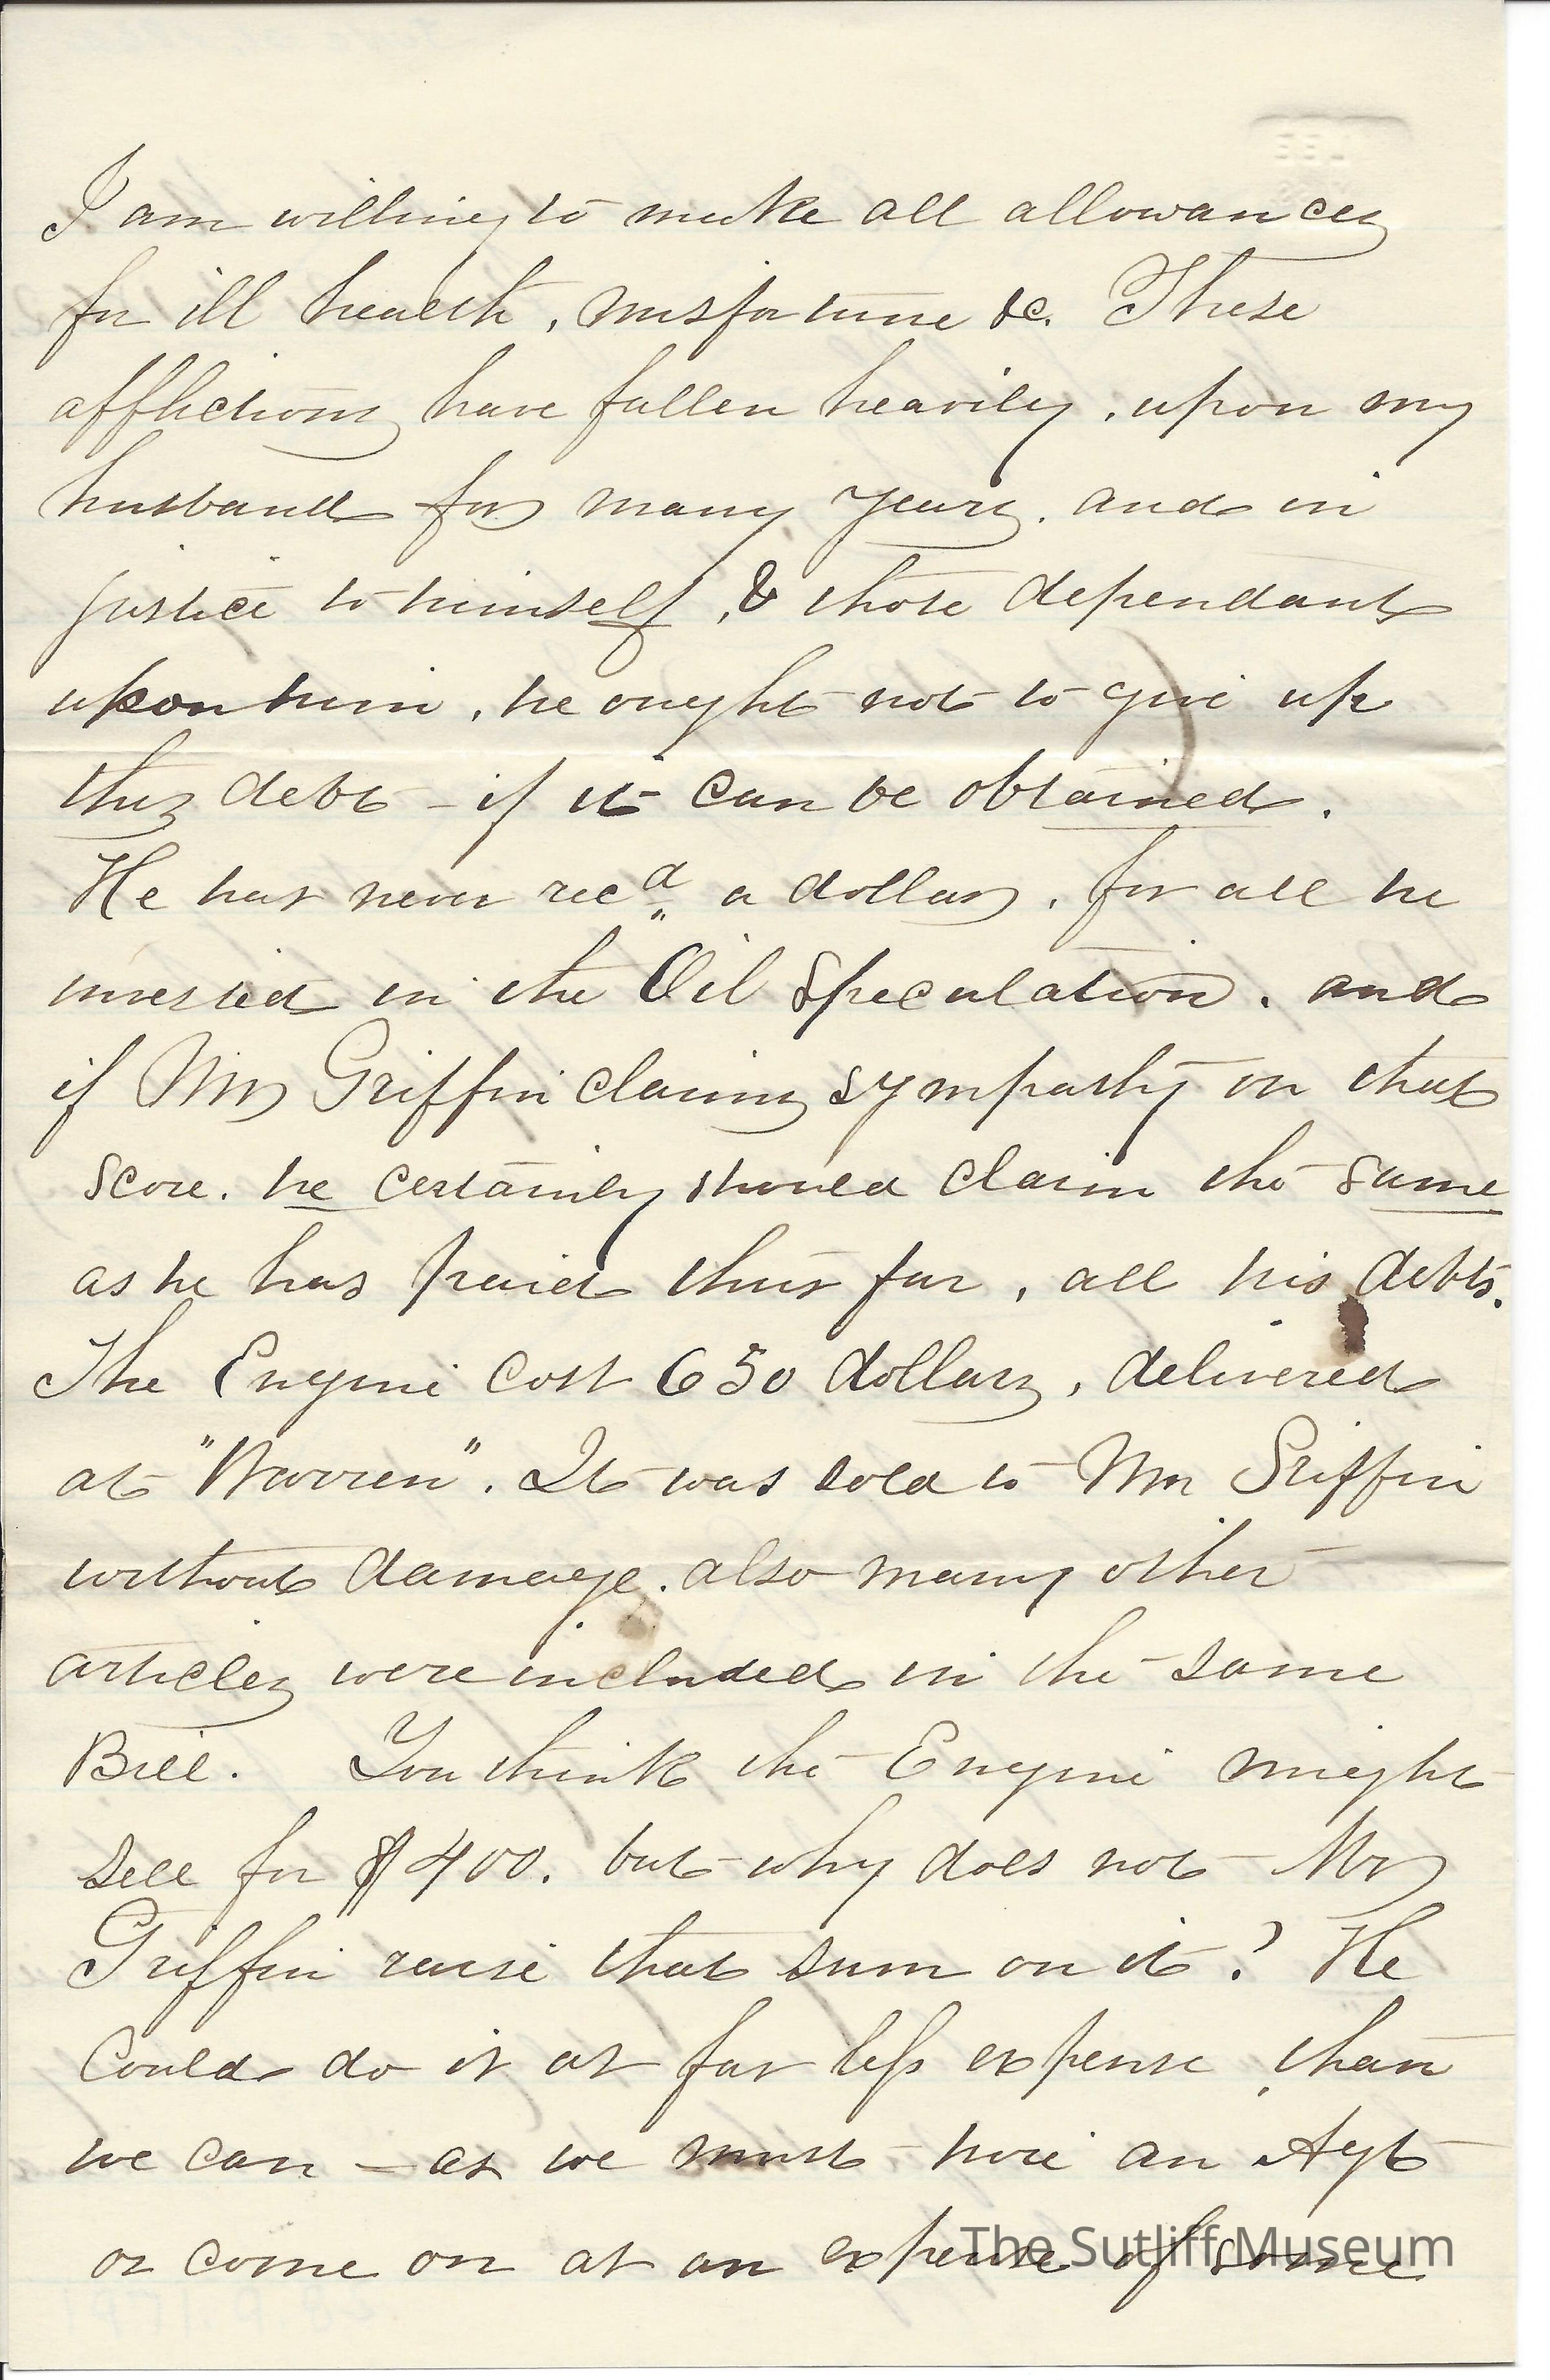 I am willing to make all allowances
for ill health, misfortune &c. These
afflictions have fallen heavily, upon my
husband for many years, and in
justice to himself, & those dependant
upon him, he ought not to give up
this debt - if it can be obtained.
He has never recd a dollar, for all he
invested in the Oil Speculation, and
if Mr Griffin claims sympathy on that
score, he certainly should claim the same
as he has paid thus far, all his debts.
The Engine cost 650 dollars, delivered
at "Warren". It was sold to Mr Griffin
without damage, also many other
articles were included in the same
Bill. You think the Engine might
sell for $400, but why does not Mr
Griffin raise that sum on it? He
could do it at far less expense, than
we can - as we must hire an Agt
or come on at an expense of some
The Sutliff Museum